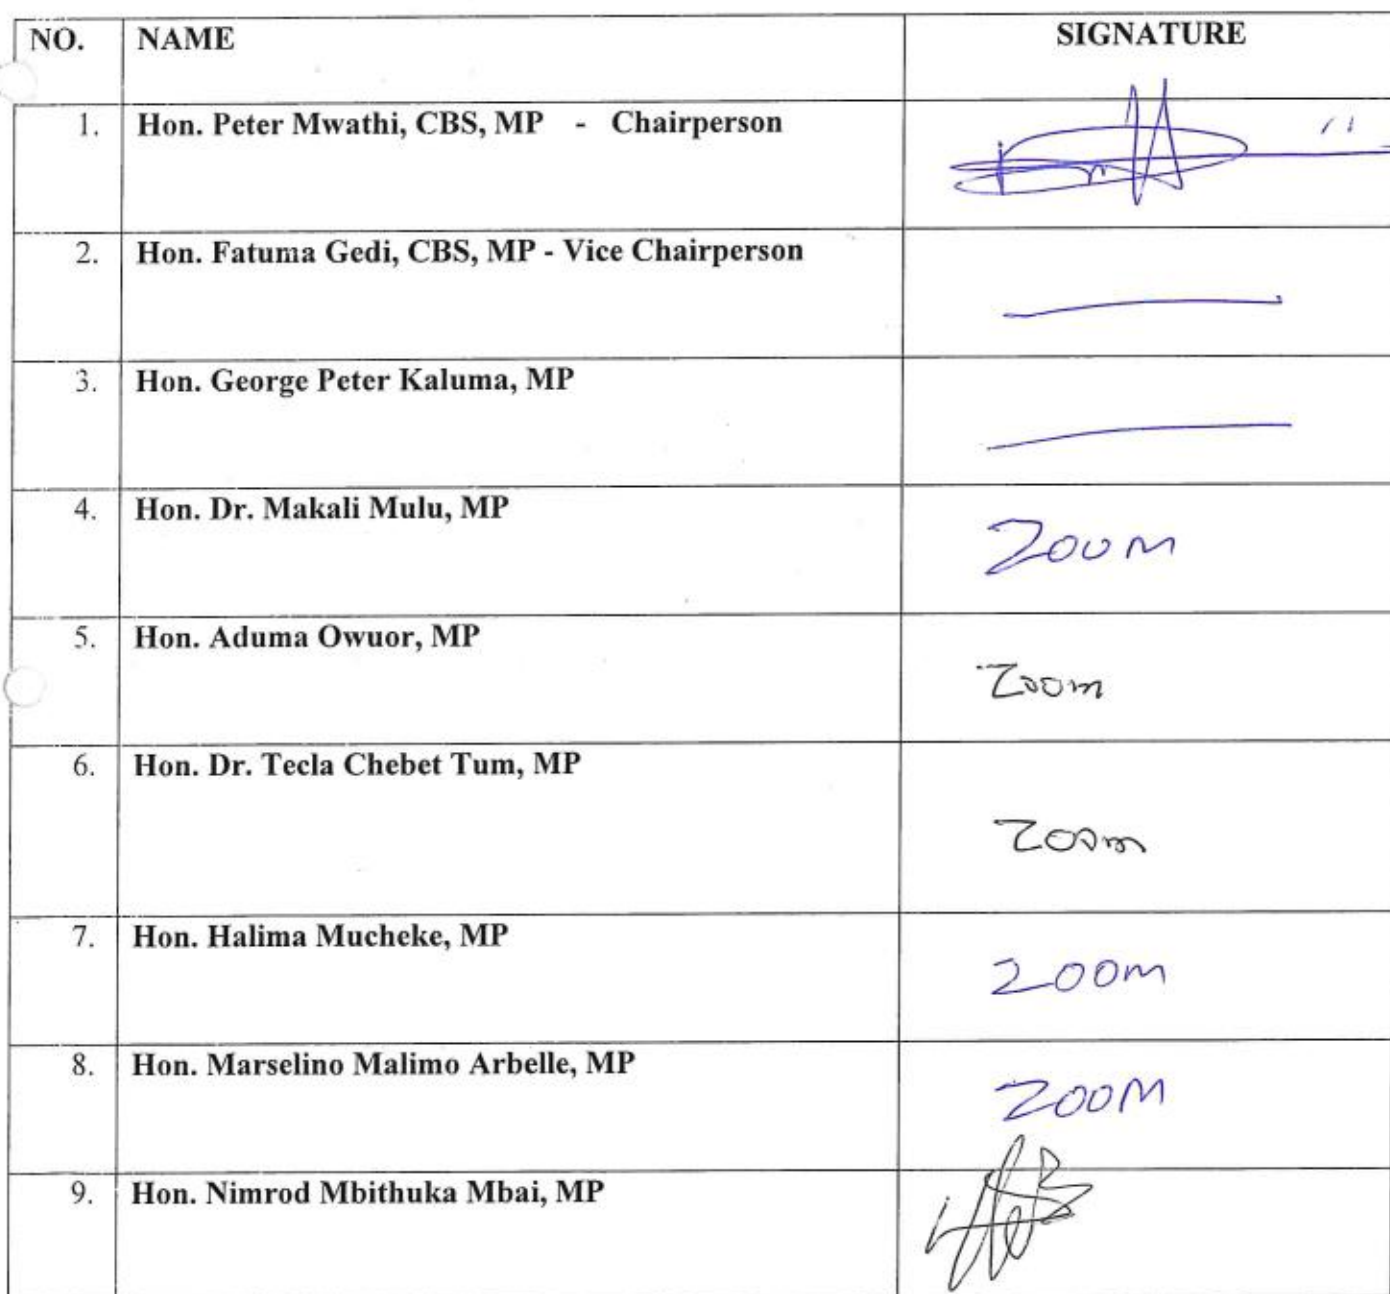 NO. NAME SIGNATURE
1. Hon. Peter Mwathi, CBS, MP - Chairperson
2. Hon. Fatuma Gedi, CBS, MP - Vice Chairperson
3. Hon. George Peter Kaluma, MP
4. Hon. Dr. Makali Mulu, MP
ZOOM
5. Hon. Aduma Owuor, MP
Zoom
6. Hon. Dr. Tecla Chebet Tum, MP
Zoom
7. Hon. Halima Mucheke, MP
Zoom
8. Hon. Marselino Malimo Arbelle, MP
ZOOM
9. Hon. Nimrod Mbithuka Mbai, MP